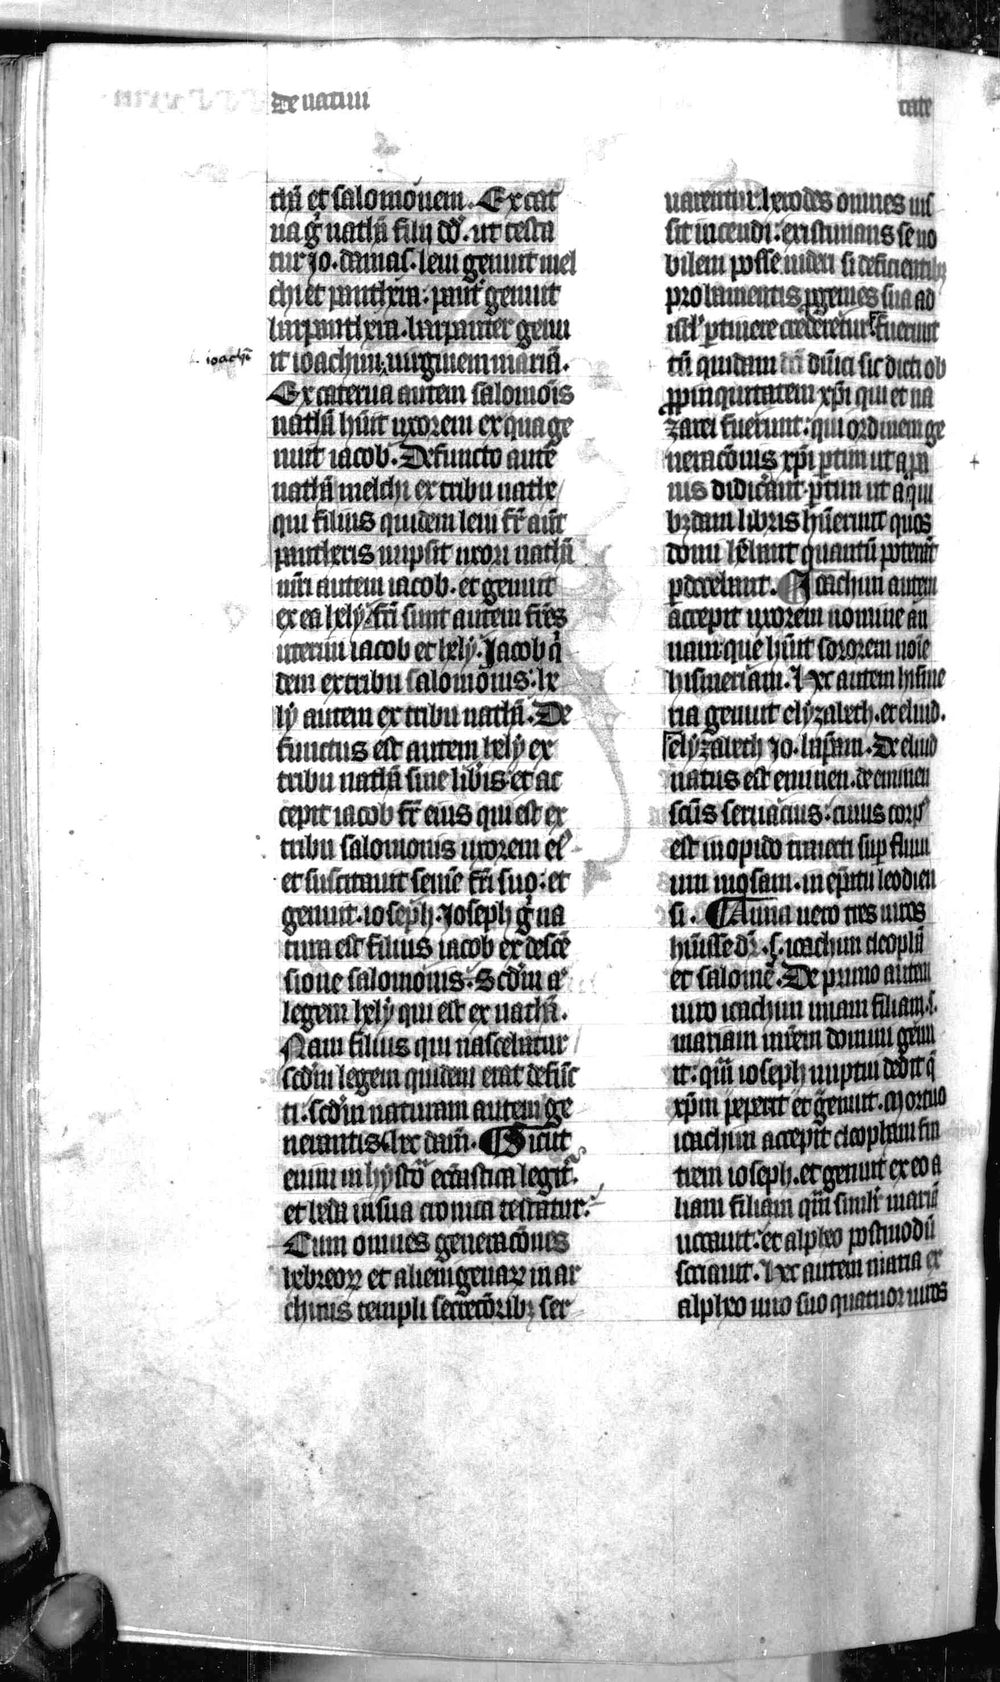 De natiui
tate
thã et salomonem. Ex cat
ua gͥ nathã filij dd̾. ut testa
tur Jo. damas. leui genuit mel
chi et panthera: pant̾ genuit
barpanthera. barpanter genu
it ioachim, uirginem mariã.
ioachĩ
Ex caterua autem salomoĩs
nathã hũit uxorem ex qua ge
nuit iacob. Defuncto autẽ
nathã melchi ex tribu nathã
qui filius quidem leui fr̃ aũt
pantheris nupsit uxori nathã
mr̃i autem iacob. et genuit
ex ea hely. fc̃i sunt autem fr̃es
uterini iacob et hely. Jacob q̃
dem ex tribu salomonis: he
ly autem ex tribu nathã. De
functus est autem hely ex
tribu nathã sine lib̾is. et ac
cepit iacob fr̃ eius qui est ex
tribu salomonis uxorem ei9
et suscitauit semẽ fr̃i suo: et
genuit. ioseph. Joseph gͥ na
tura est filius iacob ex descẽ
sione salomonis. Scd̾m aͭ
legem hely qui est ex nathã.
Nam filius qui nascebatur
scd̾m legem quidem erat defũc
ti. scd̾m naturam autem ge
nerantis. hec dam̃. Sicut
enim in hystõ eccãstica legit̃.
et beda in sua cronica testatur.
Cum omnes generacões
hebreoꝝ et alienigenaꝝ in ar
chiuis templi secreciõribꝫ ser
uarentur. herodes omnes ius
sit incendi: existimans se no
bilem posse uideri si deficientibꝫ
probamentis ꝓgenies sua ad
isrl̾ ꝑtinere crederetur. Fuerunt
tñ quidam dñici sic dicti ob
ꝓpinquitatem xp̃i qui et na
zarei fuerunt: qui ordinem ge
neracõnis xp̃i ꝑtim ut a pa
uis didicãnt. ꝑtim ut a qui
bꝫdam libris hũerunt quos
domi hẽbant quantũ poterãt
ꝑdocebant. Joachim autem
accepit uxorem nomine an
nam: que hũit sororem noĩe
hismeriam. Hec autem hisme
ria genuit elyzabeth. et eliud.
elyzabeth Jo. bap̃am. De eliud
natus est eminen. de eminen
scũs seruacius: cuius corpꝰ
est in opido traiecti sup̾ fluui
um mosam. in ep̃atu leodien
si. Anna uero tres uiros
hũisse dr̃. s. ioachim cleophã
et salomẽ. De primo autem
uiro ioachim unam filiam. s.
mariam mr̃em domini genu
it: quã ioseph nuptui dedit q̃
xp̃m peperit et genuit. Mortuo
ioachim accepit cleopham fra
trem ioseph. et genuit ex eo a
liam filiam quã simil̾r mariã
uocauit: et alpheo postmodũ
sociauit. Hec autem maria ex
alpheo uiro suo quatuor uiros